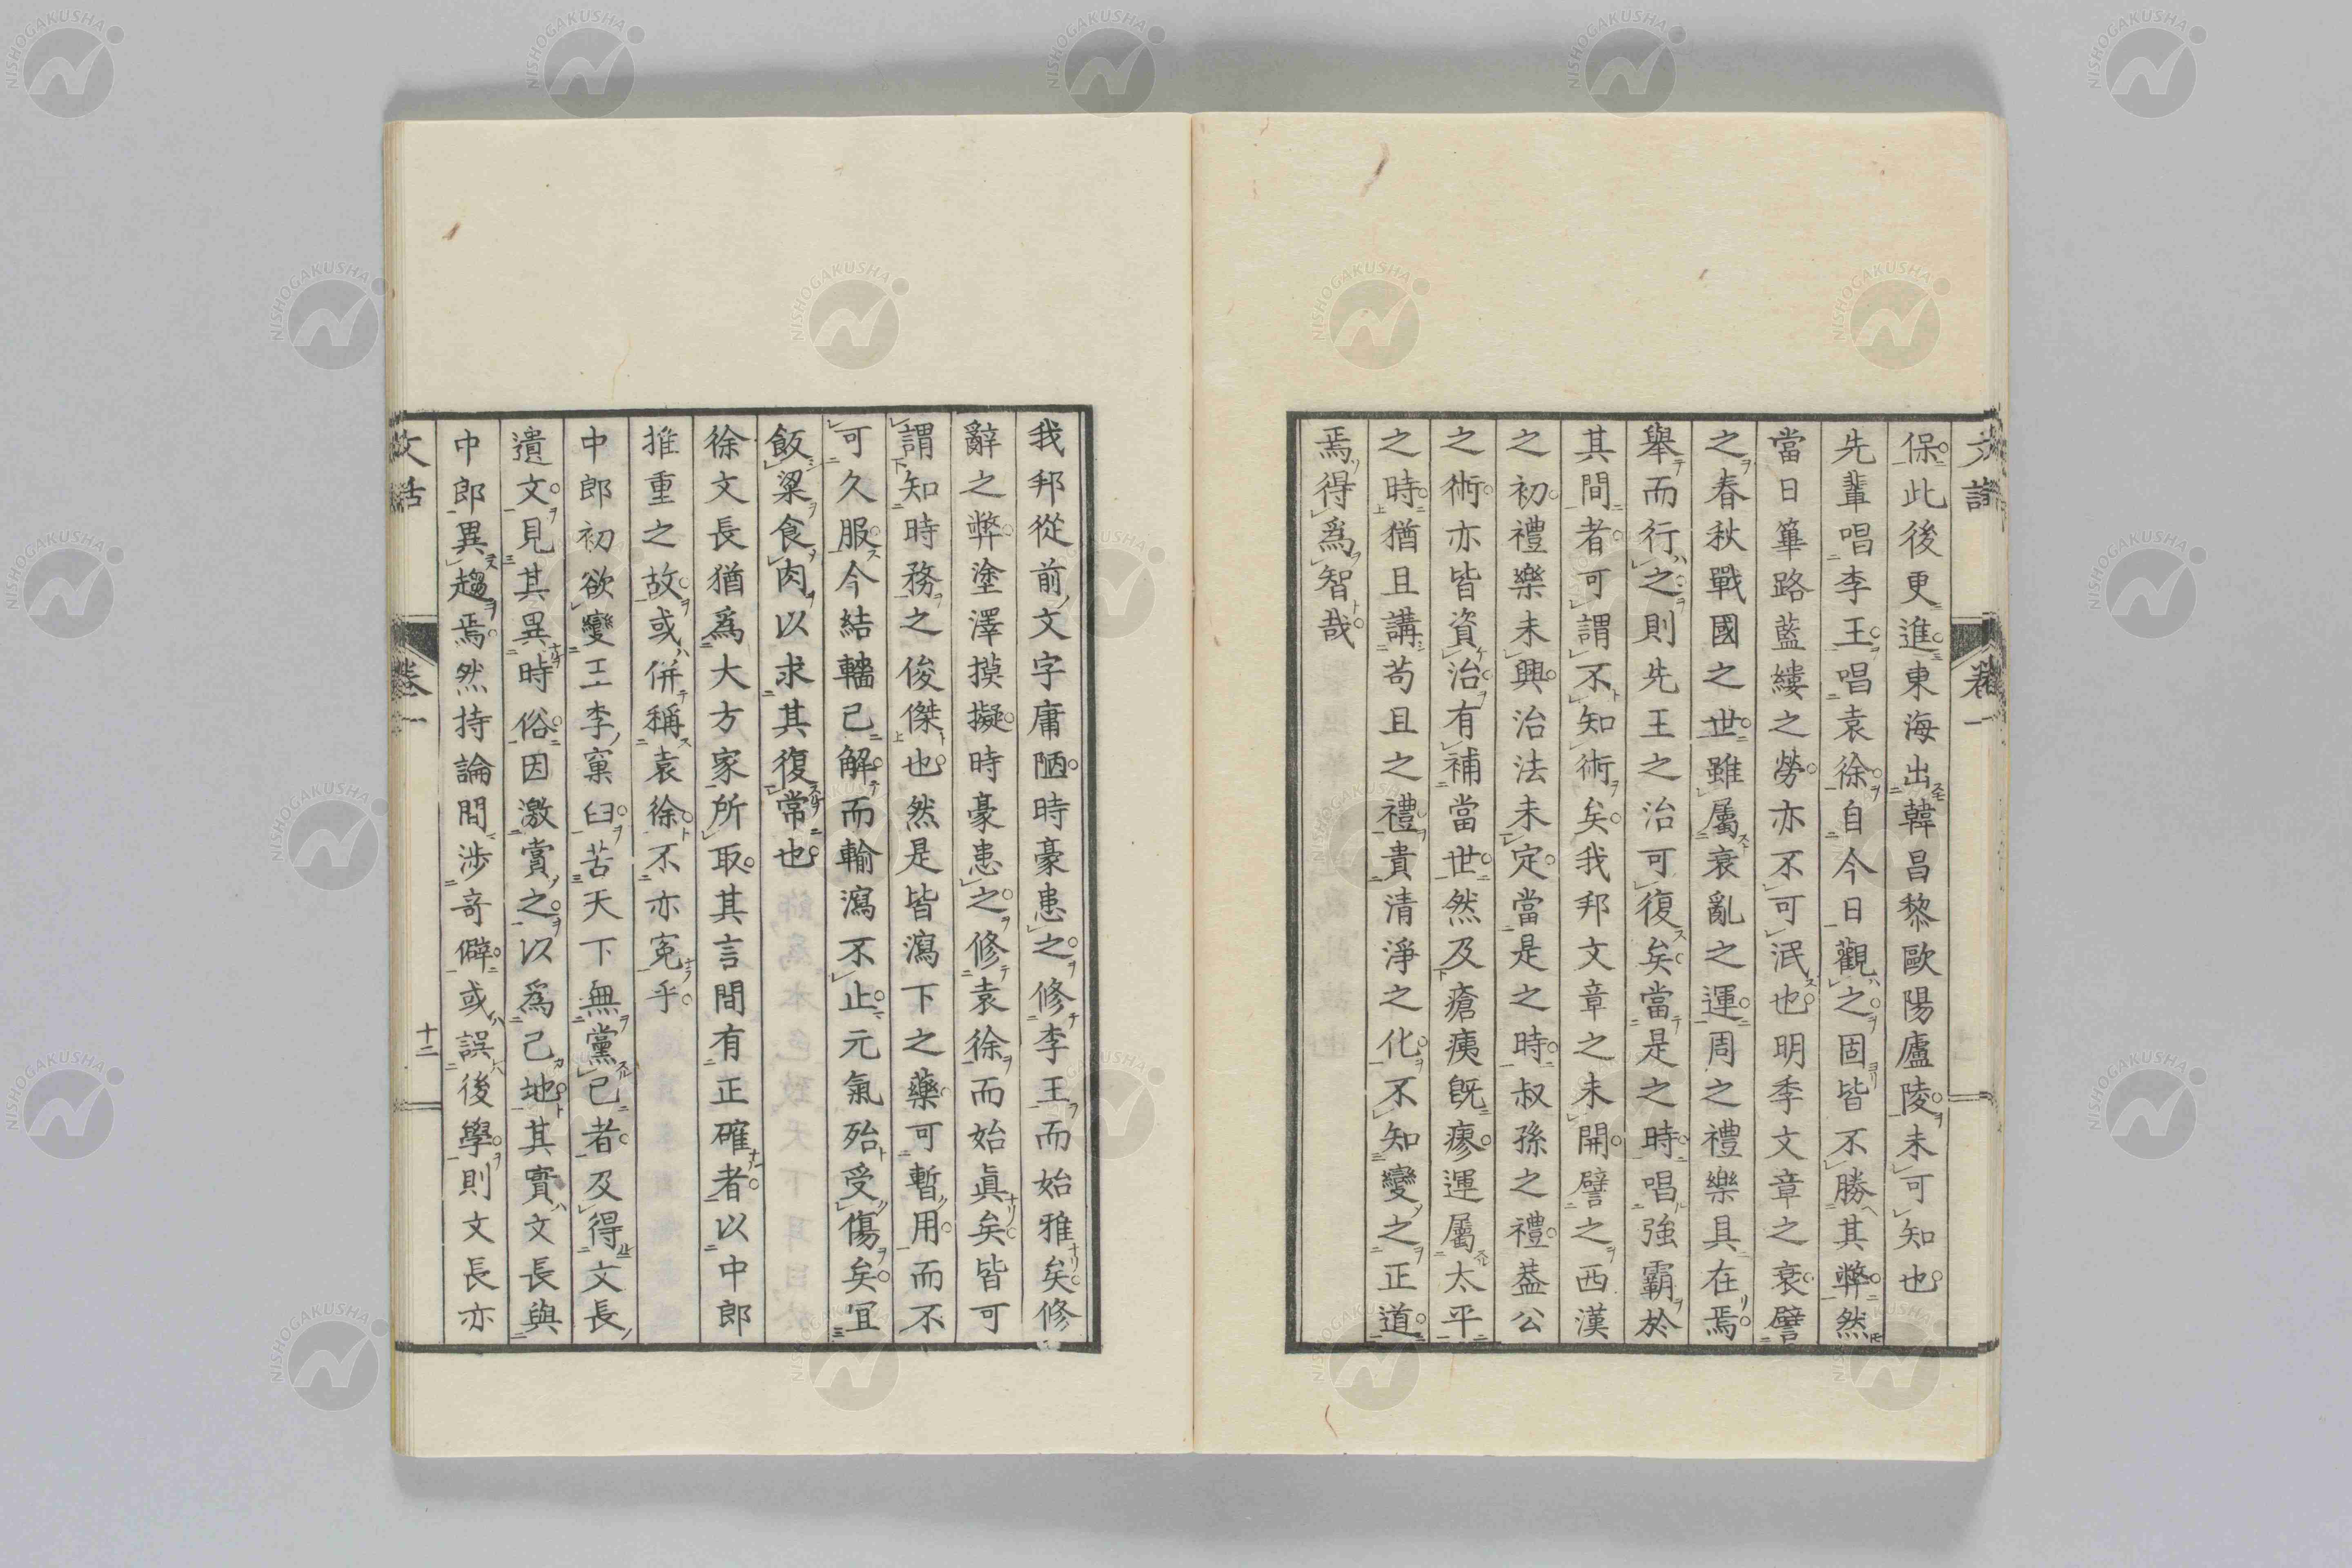 文話 卷一
保此後更進東海出韓昌黎歐陽廬陵未可知也
先輩唱李王唱袁徐自今日觀之固皆不勝其弊然
當日篳路藍縷之勞亦不可泯也明季文章之衰譬
之春秋戰國之世雖屬衰亂之運周之禮樂具在焉
舉而行之則先王之治可復矣當是之時唱強霸於
其間者可謂不知術矣我邦文章之未開譬之西漢
之初禮樂未興治法未定當是之時叔孫之禮葢公
之術亦皆資治有補當世然及瘡痍旣瘳運屬太平
之時猶且講苟且之禮貴清淨之化不知變之正道
焉得爲智哉
我邦從前文字庸陋時豪患之修李王而始雅矣修
辭之弊塗澤摸擬時豪患之修袁徐而始眞矣皆可
謂知時務之俊傑也然是皆瀉下之藥可暫用而不
可久服今結轖已解而輸瀉不止元氣殆受傷矣宜
飯粱食肉以求其復常也
徐文長猶爲大方家所取其言間有正確者以中郎
推重之故或併稱袁徐不亦寃乎
中郎初欲變王李窠臼苦天下無黨已者及得文長
遺文見其異時俗因激賞之以爲己地其實文長與
中郎異趨焉然持論間涉奇僻或誤後學則文長亦
文話 卷一 十二
NISHOGAKUSHA